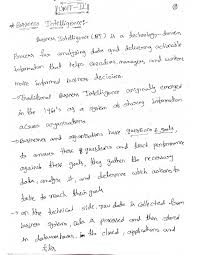 UNIT-II
* Business Intelligence:-
Business Intelligence (BI) is a technology-driven
Process for analyzing data and delivering actionable
information that helps executives, managers and workers
make informed business decisions.
→ Traditional Business Intelligence originally emerged
in the 1960's as a system of sharing information
across organisations.
→ Businesses and organisations have questions & goals,
to answer these questions and track performance
against these goals, they gather the necessary
data, analyze it, and determine which actions to
take to reach their goals
→ on the technical side, raw data is collected from
business systems, data is processed and then stored
in data warehouses, the cloud, applications and
files.